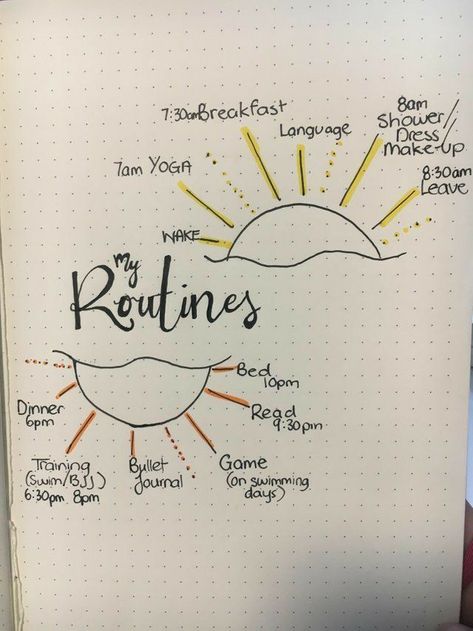 My
Routines
WAKE
7am YOGA
7:30am Breakfast
Language
8am
Shower/
Dress/
Make-up
8:30am
Leave
Dinner
6pm
Training
(Swim/BJJ)
6:30pm 8pm
Bullet
Journal
Game
(on swimming
days)
Read
9:30pm
Bed
10pm